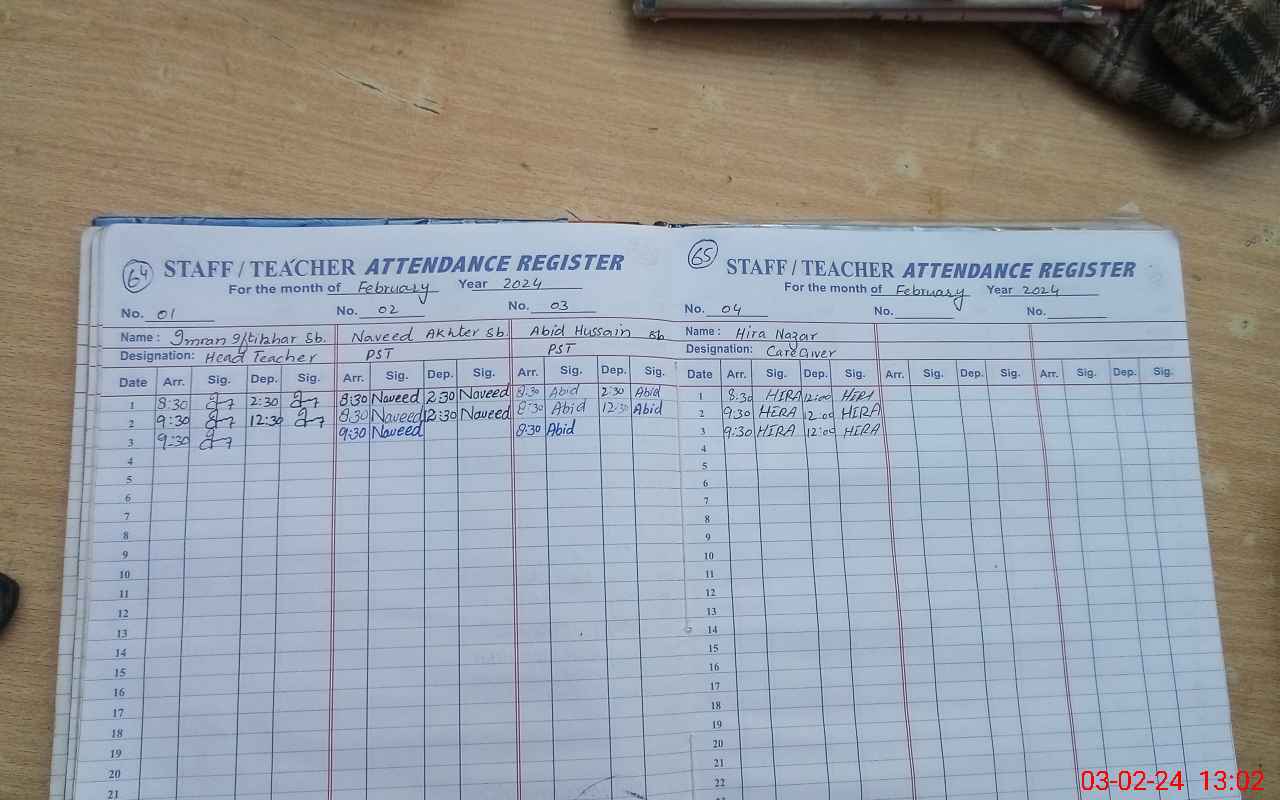 64
STAFF / TEACHER ATTENDANCE REGISTER
For the month of February Year 2024
No. 01 No. 02 No. 03
Name : Imran Iftikhar Sb. Naveed Akhter Sb. Abid Hussain Sb
Designation: Head Teacher PST PST
Date Arr. Sig. Dep. Sig. Arr. Sig. Dep. Sig. Arr. Sig. Dep. Sig.
1 8:30 2:30 8:30 Naveed 2:30 Naveed 8:30 Abid 2:30 Abid
2 9:30 12:30 8:30 Naveed 12:30 Naveed 8:30 Abid 12:30 Abid
3 9:30 9:30 Naveed 8:30 Abid
4
5
6
7
8
9
10
11
12
13
14
15
16
17
18
19
20
21
65
STAFF / TEACHER ATTENDANCE REGISTER
For the month of February Year 2024
No. 04 No. No.
Name : Hira Nazar
Designation: CareGiver
Date Arr. Sig. Dep. Sig. Arr. Sig. Dep. Sig. Arr. Sig. Dep. Sig.
1 8:30 HIRA 12:00 HIRA
2 9:30 HIRA 12:00 HIRA
3 9:30 HIRA 12:00 HIRA
4
5
6
7
8
9
10
11
12
13
14
15
16
17
18
19
20
21
22
03-02-24 13:02